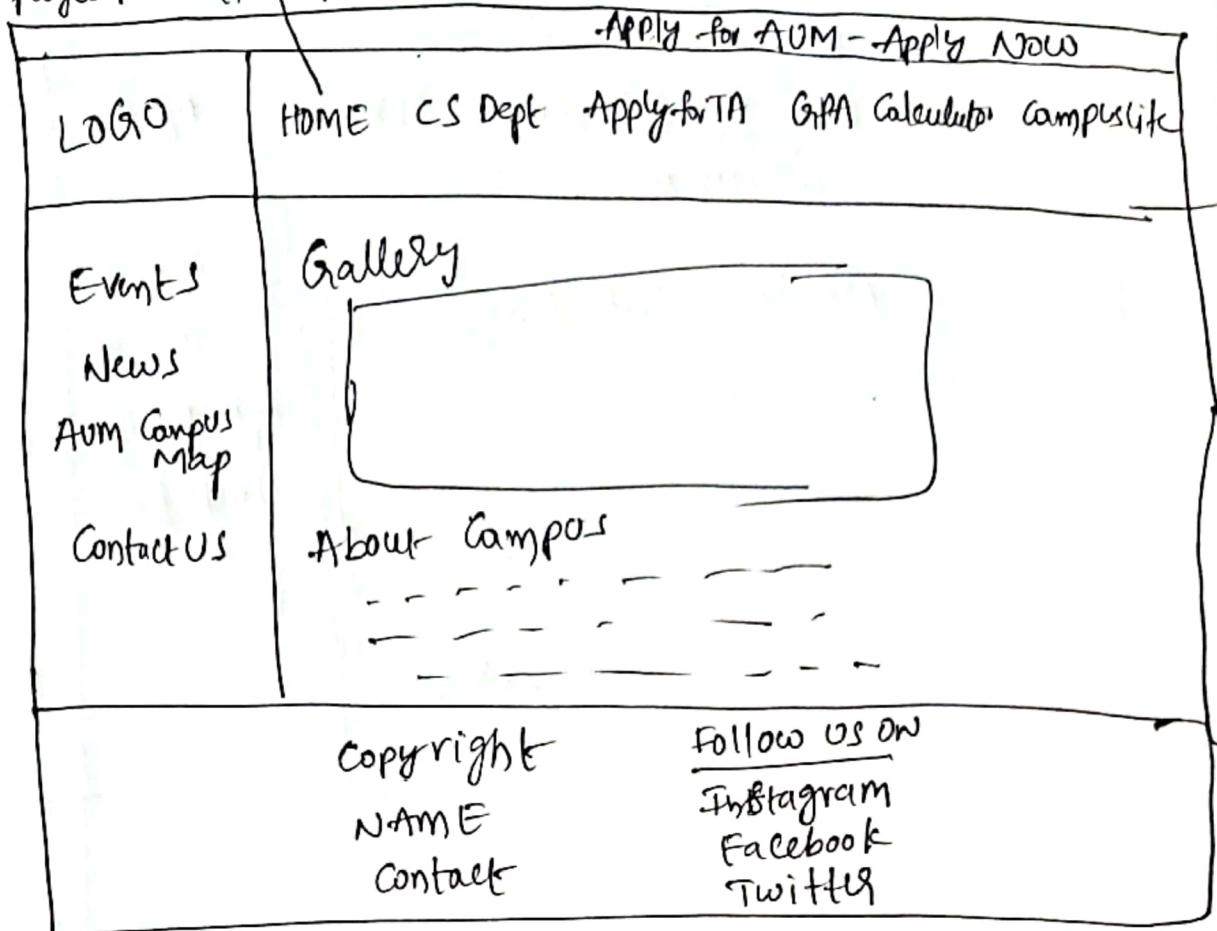 Apply for AUM - Apply Now
LOGO
HOME CS Dept Apply for TA GPA Calculator Campuslife
Events
News
AUM Campus
Map
Contact Us
Gallery
About Campus
Copyright
NAME
Contact
Follow us ON
Instagram
Facebook
Twitter